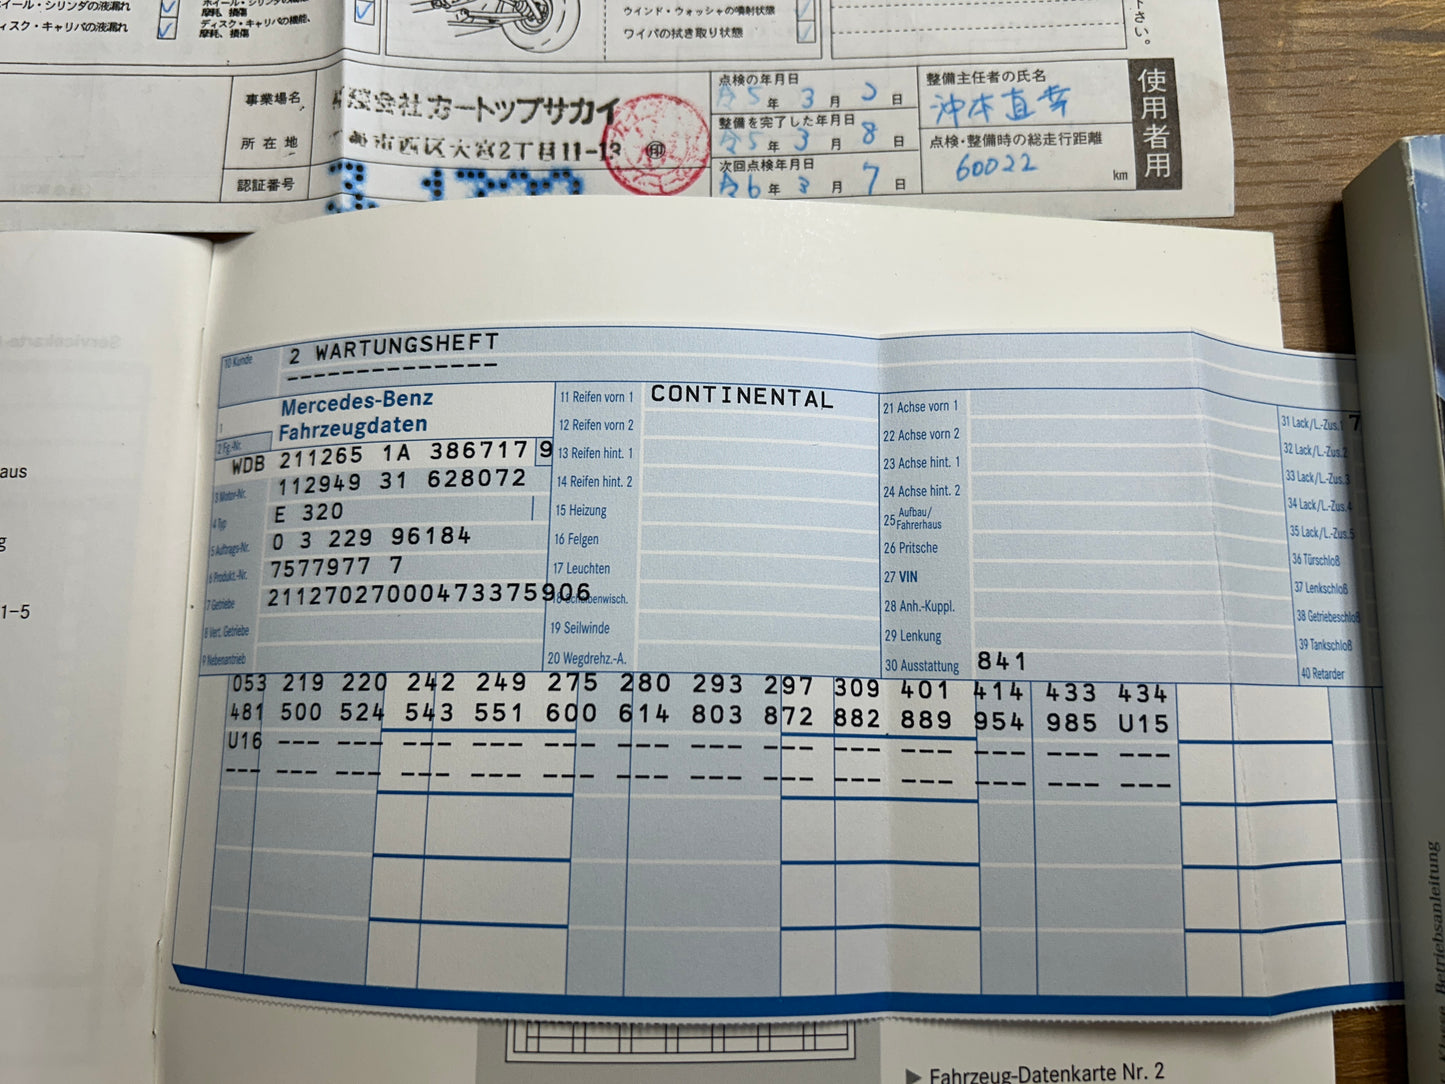 イール・シリンダの液漏れ
ィスク・キャリパの液漏れ
ホイール・シリンダの機能、
摩耗、損傷
ディスク・キャリパの機能、
摩耗、損傷
ウインド・ウォッシャの噴射状態
ワイパの拭き取り状態
下さい。
事業場名
会社カートップサカイ
所在地
市西区大宮2丁目11-13
㊞
認証番号
点検の年月日
令5年3月2日
整備を完了した年月日
令5年3月8日
次回点検年月日
令6年3月7日
整備主任者の氏名
沖本直幸
点検・整備時の総走行距離
60022 km
使用者用
aus
g
1–5
10 Kunde
2 WARTUNGSHEFT
--------------
1
Mercedes-Benz
Fahrzeugdaten
2 Fg.-Nr.
WDB 211265 1A 386717 9
3 Motor-Nr.
112949 31 628072
4 Typ
E 320
5 Auftrags-Nr.
0 3 229 96184
6 Produkt.-Nr.
7577977 7
7 Getriebe
21127027000473375906
8 Vert. Getriebe
9 Nebenantrieb
11 Reifen vorn 1
CONTINENTAL
12 Reifen vorn 2
13 Reifen hint. 1
14 Reifen hint. 2
15 Heizung
16 Felgen
17 Leuchten
18 Scheibenwisch.
19 Seilwinde
20 Wegdrehz.-A.
21 Achse vorn 1
22 Achse vorn 2
23 Achse hint. 1
24 Achse hint. 2
25 Aufbau/
Fahrerhaus
26 Pritsche
27 VIN
28 Anh.-Kuppl.
29 Lenkung
30 Ausstattung
841
31 Lack/L.-Zus.1 7
32 Lack/L.-Zus.2
33 Lack/L.-Zus.3
34 Lack/L.-Zus.4
35 Lack/L.-Zus.5
36 Türschloß
37 Lenkschloß
38 Getriebeschloß
39 Tankschloß
40 Retarder
053 219 220 242 249 275 280 293 297 309 401 414 433 434
481 500 524 543 551 600 614 803 872 882 889 954 985 U15
U16 --- --- --- --- --- --- --- --- --- --- --- --- ---
--- --- --- --- --- --- --- --- --- --- --- --- --- ---
▶ Fahrzeug-Datenkarte Nr. 2
Betriebsanleitung